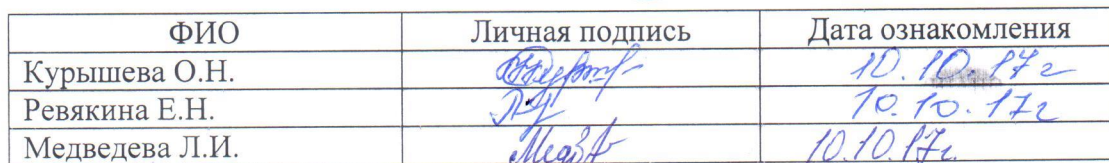 ФИО Личная подпись Дата ознакомления
Курышева О.Н. 10.10.17г
Ревякина Е.Н. 10.10.17г
Медведева Л.И. 10.10.17г.